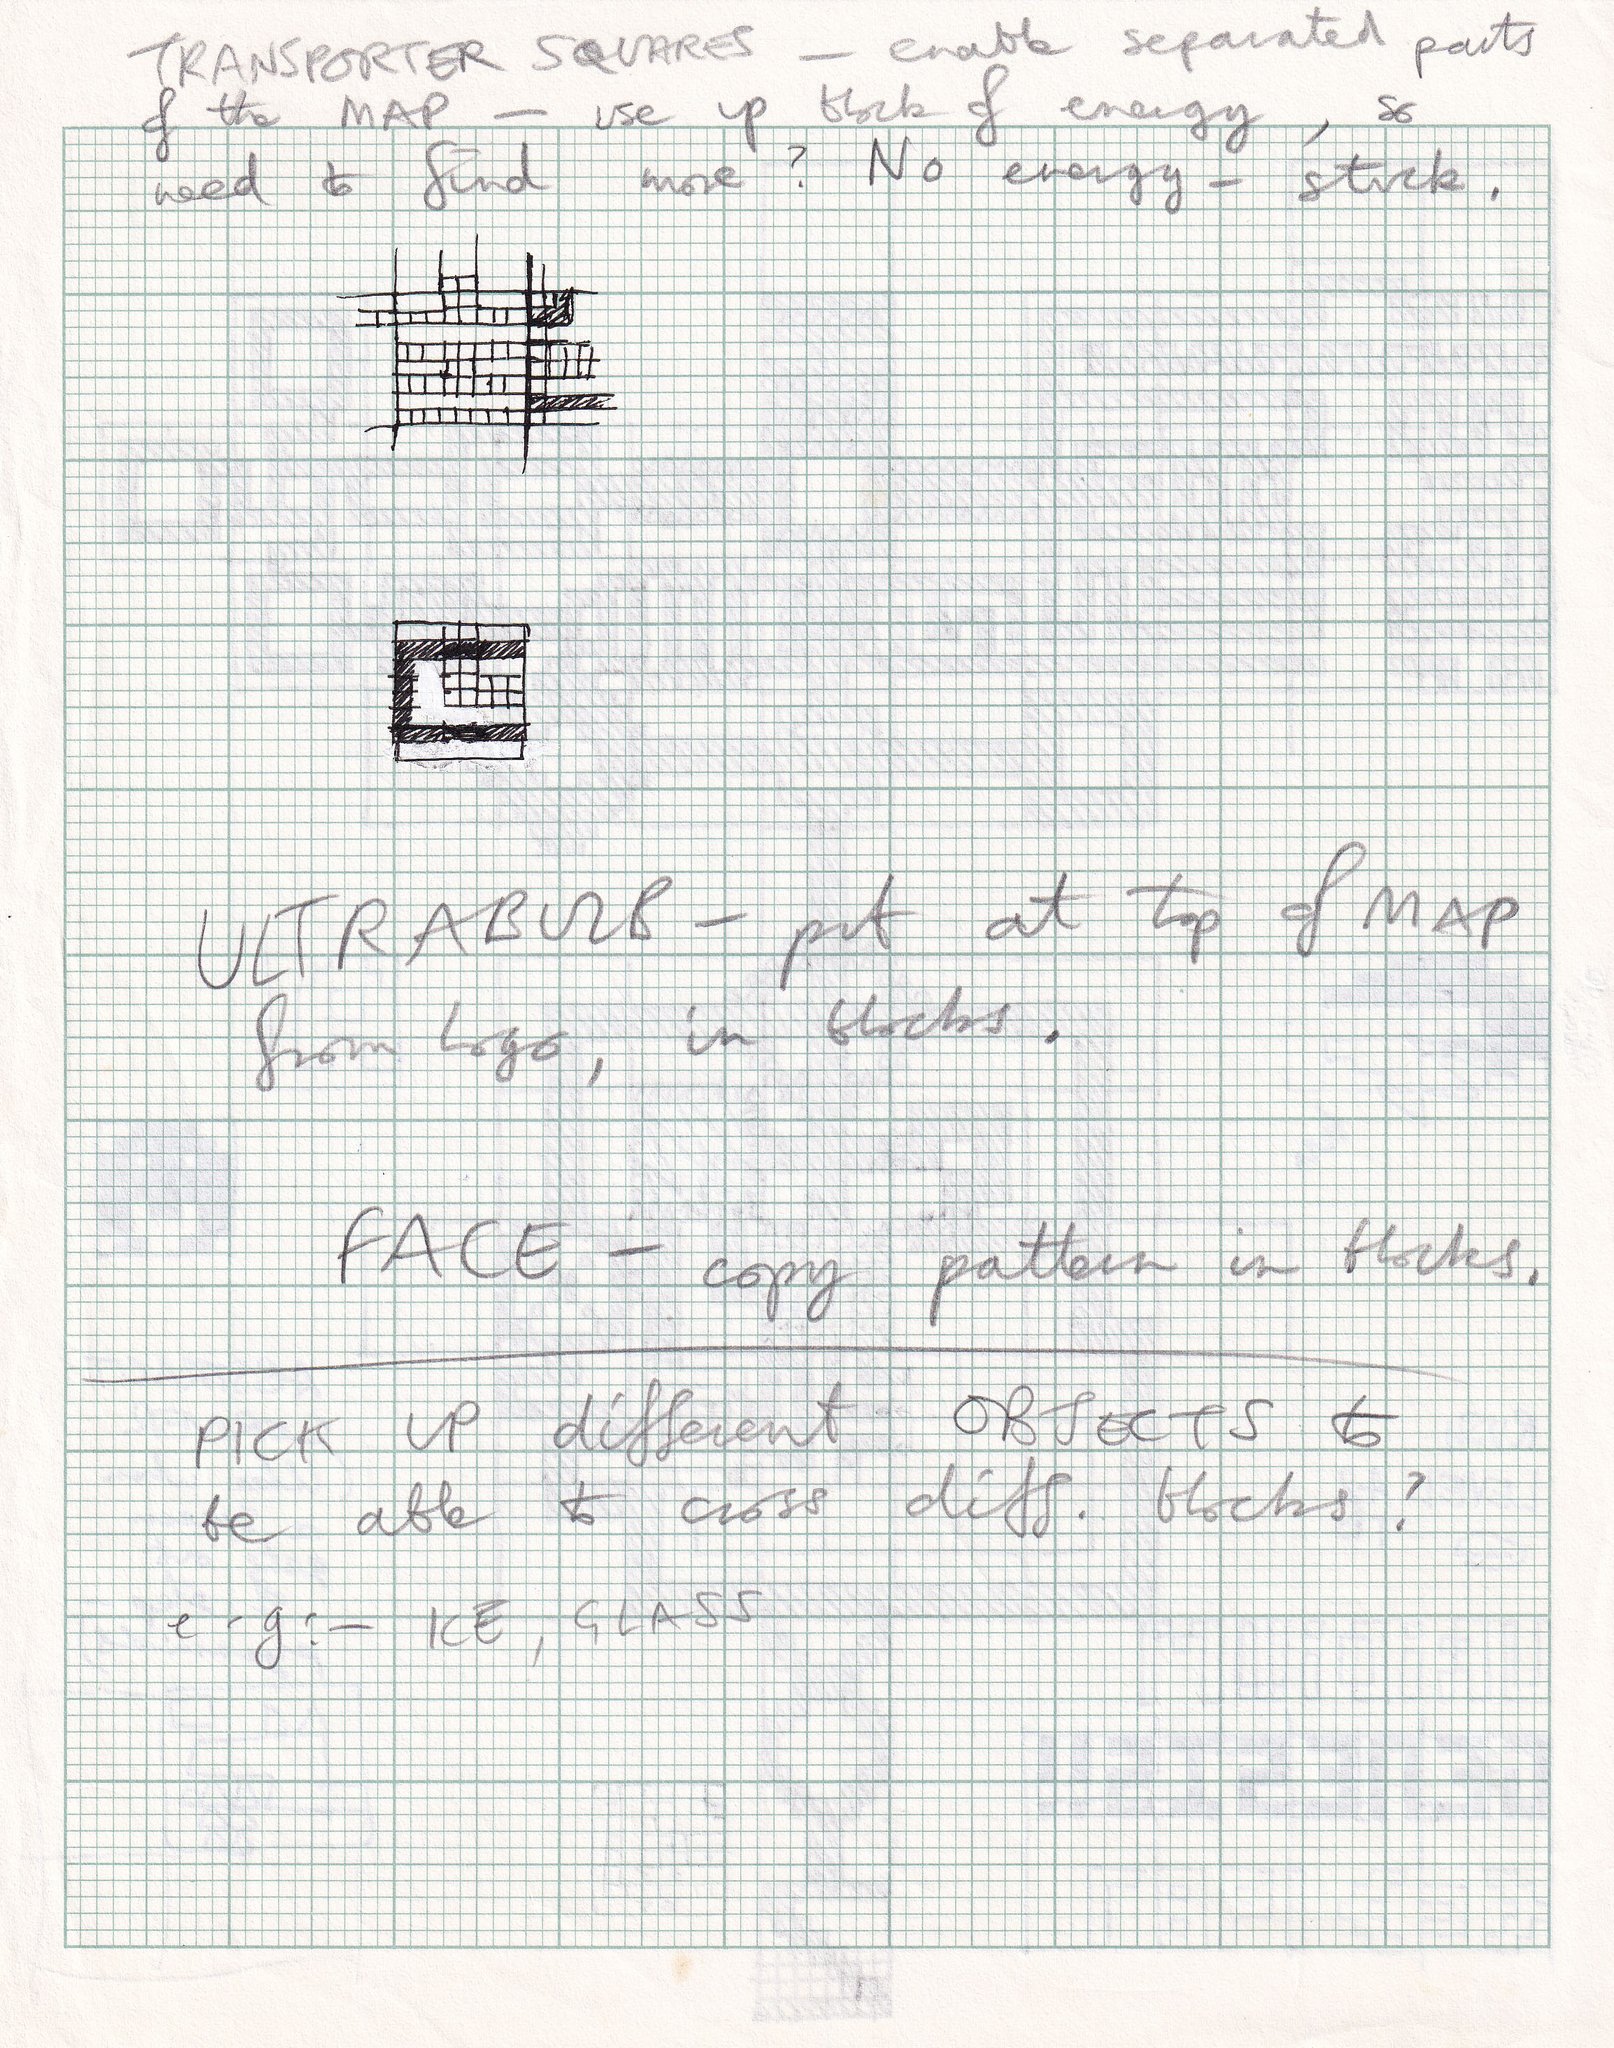 TRANSPORTER SQUARES — enable separated parts
of the MAP — use up block of energy, so
need to find more? No energy - stuck.
ULTRABULB - put at top of MAP
from logo, in blocks.
FACE - copy pattern in blocks.
PICK UP different OBJECTS to
be able to cross diff. blocks?
e.g:- ICE, GLASS